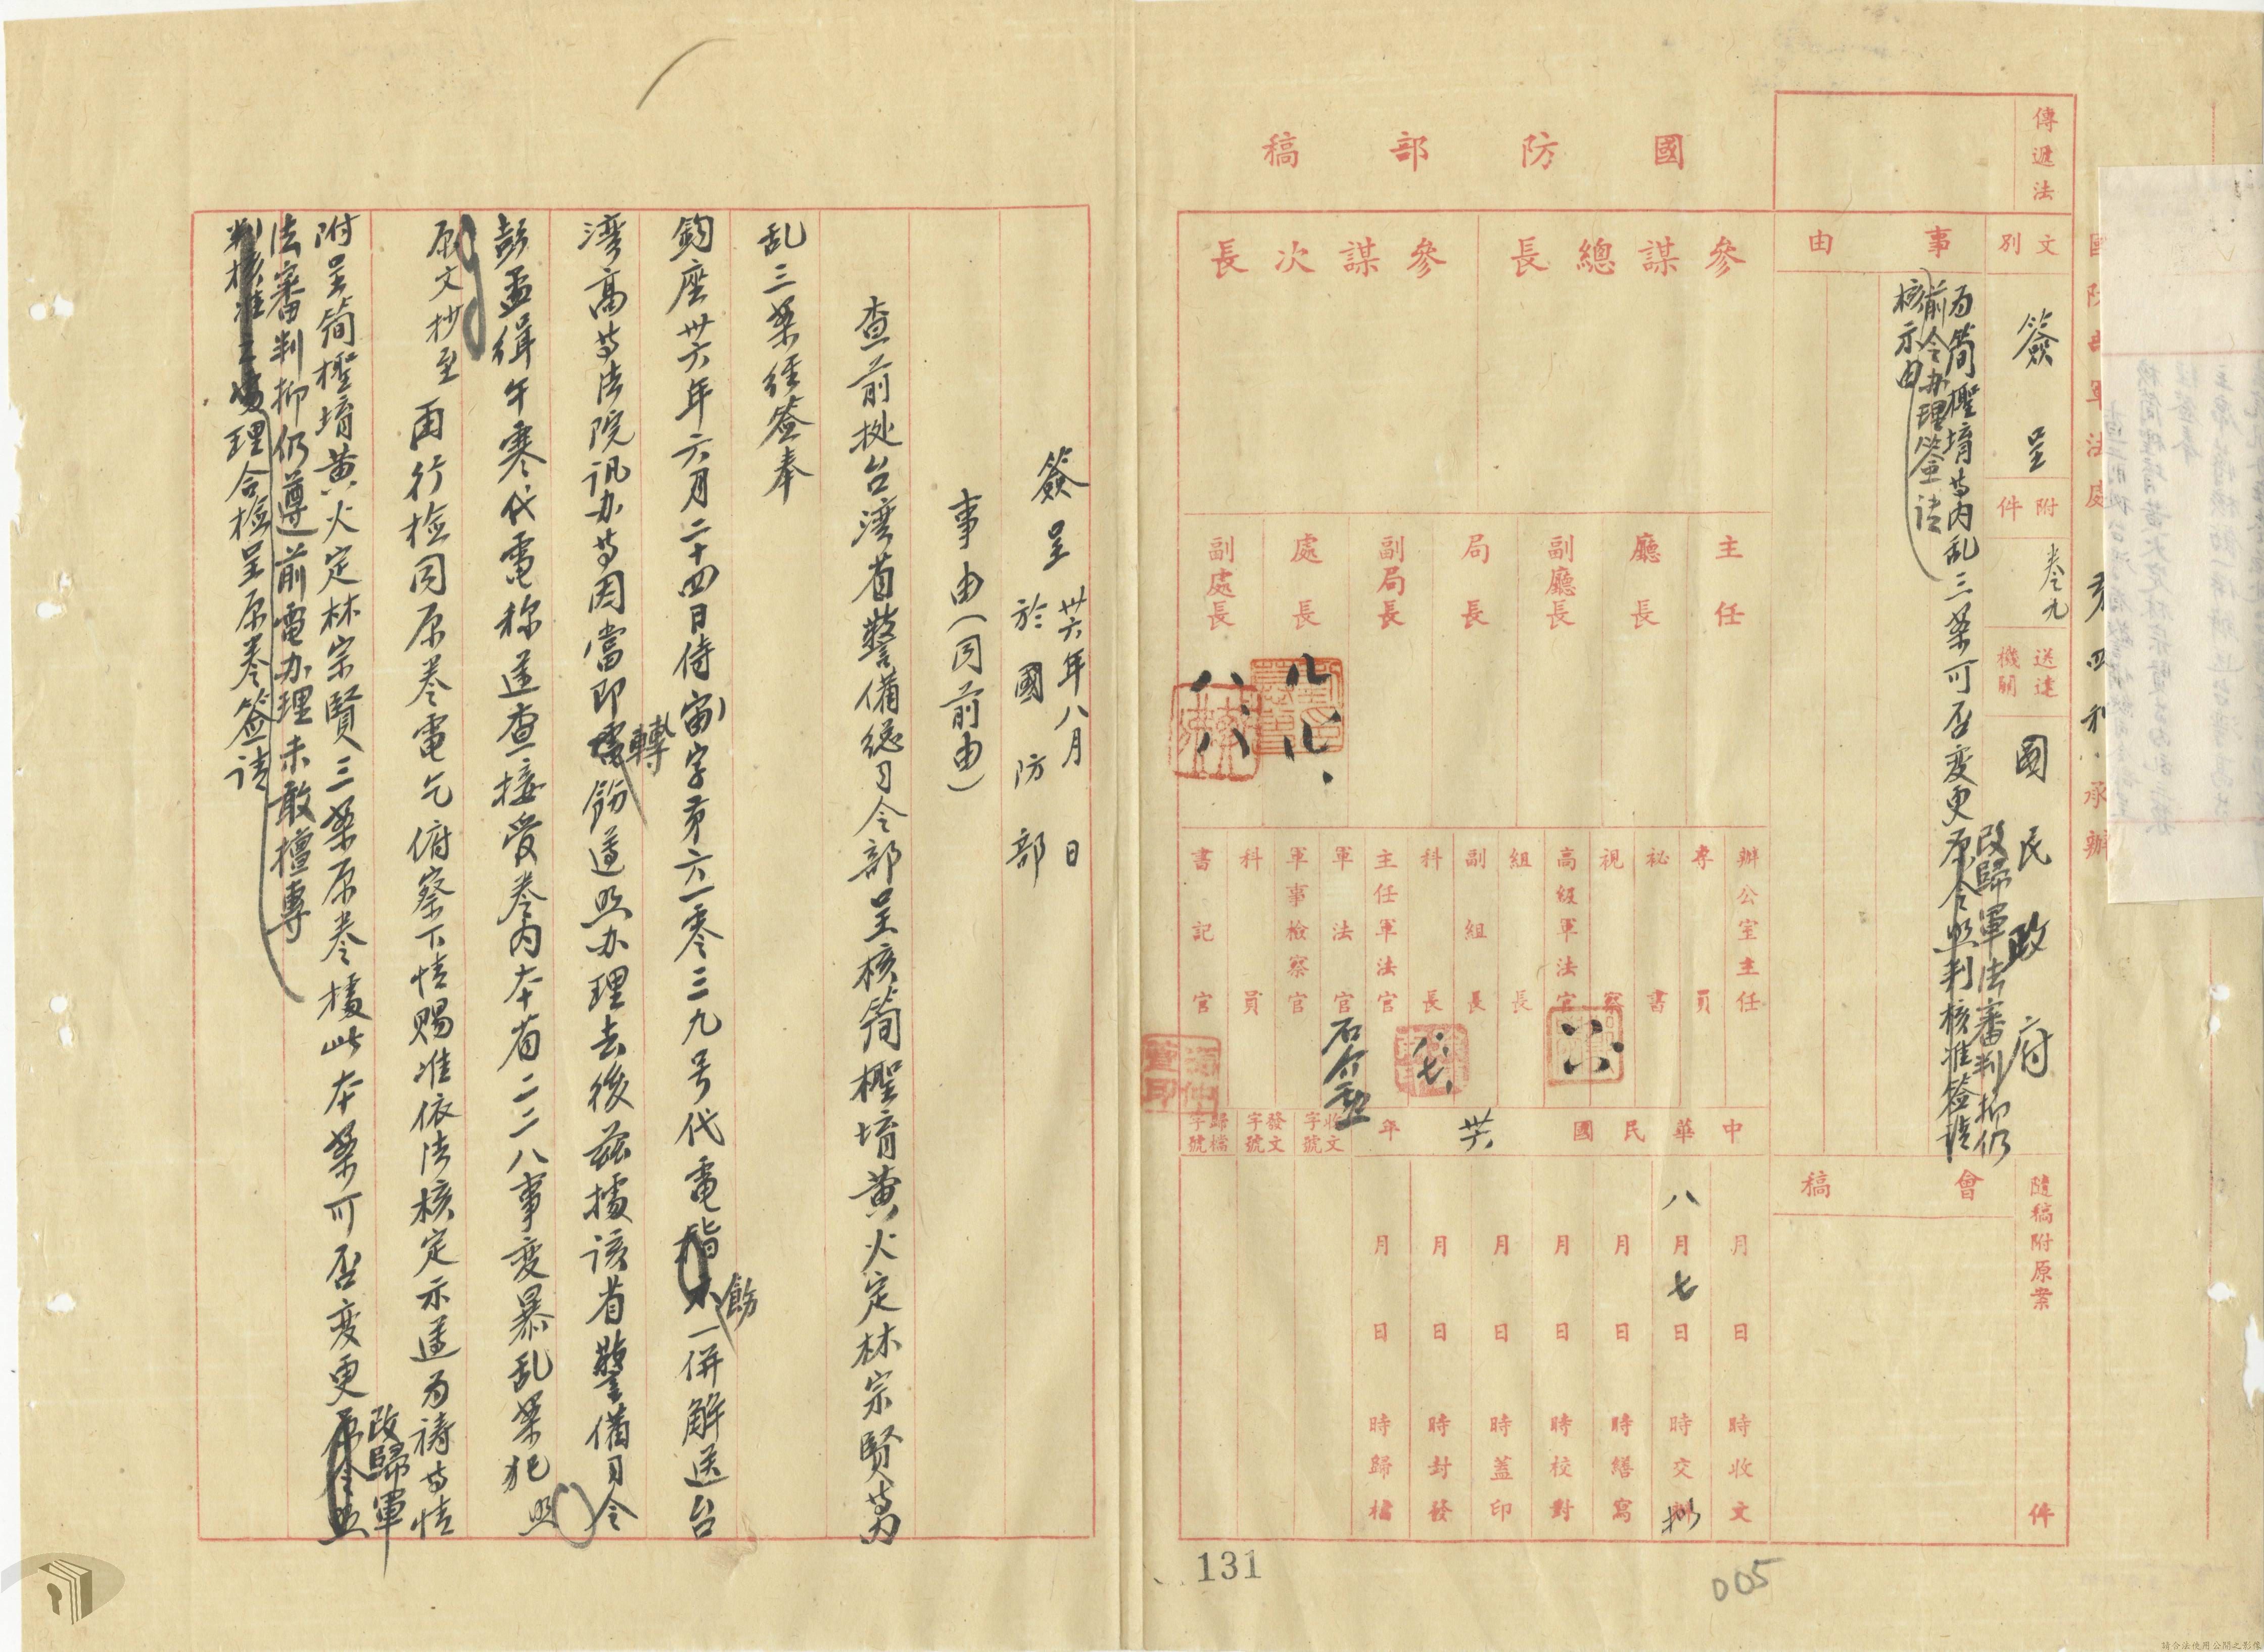 國防部稿
傳遞法
文別
簽呈
附件
卷九
送達機關
國民政府
事由
為簡檉堉等內乱三案可否变更原令照判核准簽請
改歸軍法審判抑仍
前令办理簽請
核示由
隨稿附原案
件
會稿
參謀總長
參謀次長
主任
廳長
副廳長
局長
副局長
處長
副處長
辦公室主任
專員
秘書
視察
高級軍法官
組長
副組長
科長
主任軍法官
軍法官
軍事檢察官
科員
書記官
中華民國卅六年
收文字號
發文字號
歸檔字號
月日時收文
八月七日時交拟
月日時繕寫
月日時校對
月日時蓋印
月日時封發
月日時歸檔
131
005
簽呈
卅六年八月 日
於國防部
事由(同前由)
查前拠台湾省警備總司令部呈核簡檉堉黄火定林宗賢等內
乱三案経簽奉
鈞座卅六年六月二十四日侍(宙)字第六一零三九号代電飭一併解送台
湾高等法院訊办等因當即轉飭遵照办理去後茲據該省警備司令
彭孟緝午寒代電称遵查接受卷內本省二二八事变暴乱案犯照
原文抄至
再行檢同原卷電乞俯察下情賜准依法核定示遵为禱等情
附呈簡檉堉黄火定林宗賢三案原卷據此本案可否变更原令照
改歸軍
法審判抑仍遵前電办理未敢擅專
判核准之處理合檢呈原卷簽請